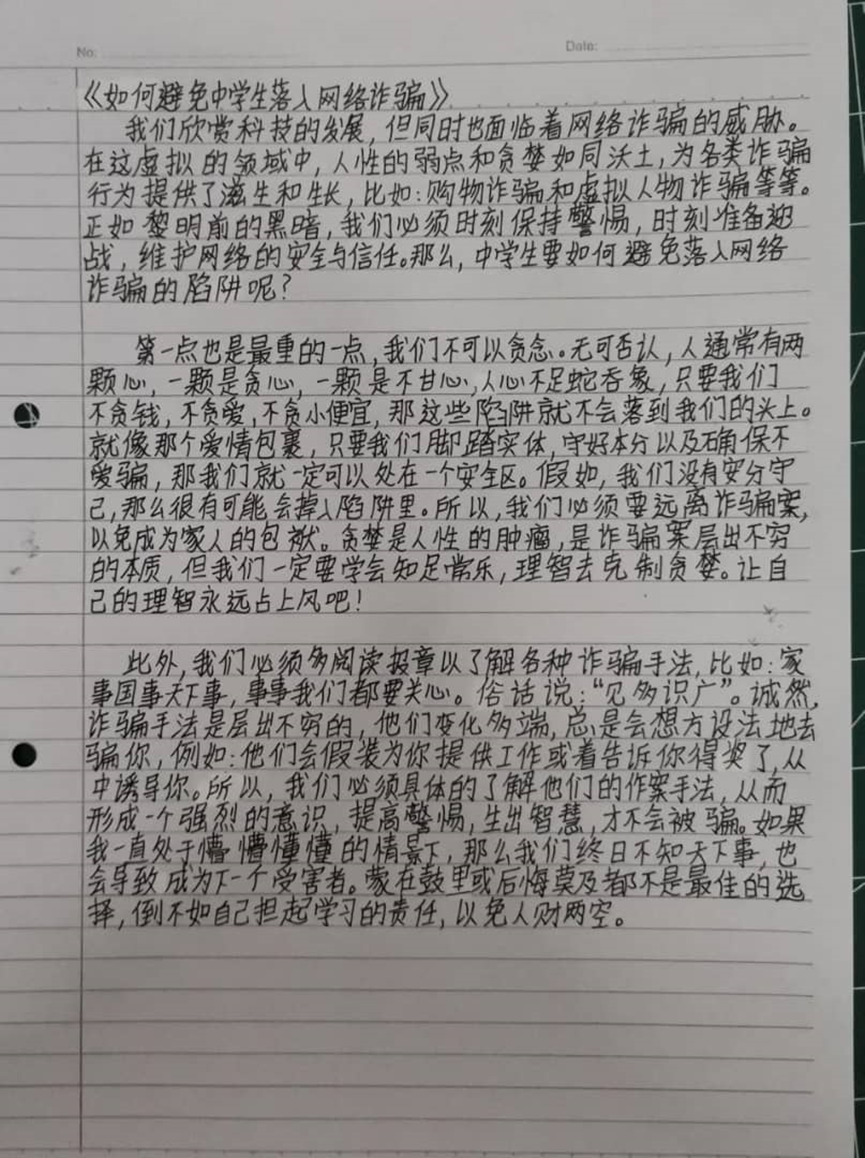 No:
Date:
《如何避免中学生落入网络诈骗》
我们欣赏科技的发展，但同时也面临着网络诈骗的威胁。
在这虚拟的领域中，人性的弱点和贪婪如同沃土，为各类诈骗
行为提供了滋生和生长，比如：购物诈骗和虚拟人物诈骗等等。
正如黎明前的黑暗，我们必须时刻保持警惕，时刻准备迎
战，维护网络的安全与信任。那么，中学生要如何避免落入网络
诈骗的陷阱呢？
第一点也是最重的一点，我们不可以贪念。无可否认，人通常有两
颗心，一颗是贪心，一颗是不甘心，人心不足蛇吞象，只要我们
不贪钱，不贪爱，不贪小便宜，那这些陷阱就不会落到我们的头上。
就像那个爱情包裹，只要我们脚踏实体，守好本分以及确保不
爱骗，那我们就一定可以处在一个安全区。假如，我们没有安分守
己，那么很有可能会掉入陷阱里。所以，我们必须要远离诈骗案，
以免成为家人的包袱。贪婪是人性的肿瘤，是诈骗案层出不穷
的本质，但我们一定要学会知足常乐，理智去克制贪婪。让自
己的理智永远占上风吧！
此外，我们必须多阅读报章以了解各种诈骗手法，比如：家
事国事天下事，事事我们都要关心。俗话说：“见多识广”。诚然，
诈骗手法是层出不穷的，他们变化多端，总是会想方设法地去
骗你，例如：他们会假装为你提供工作或着告诉你得奖了，从
中诱导你。所以，我们必须具体的了解他们的作案手法，从而
形成一个强烈的意识，提高警惕，生出智慧，才不会被骗。如果
我一直处于懵懵懂懂的情景下，那么我们终日不知天下事，也
会导致成为下一个受害者。蒙在鼓里或后悔莫及都不是最佳的选
择，倒不如自己担起学习的责任，以免人财两空。